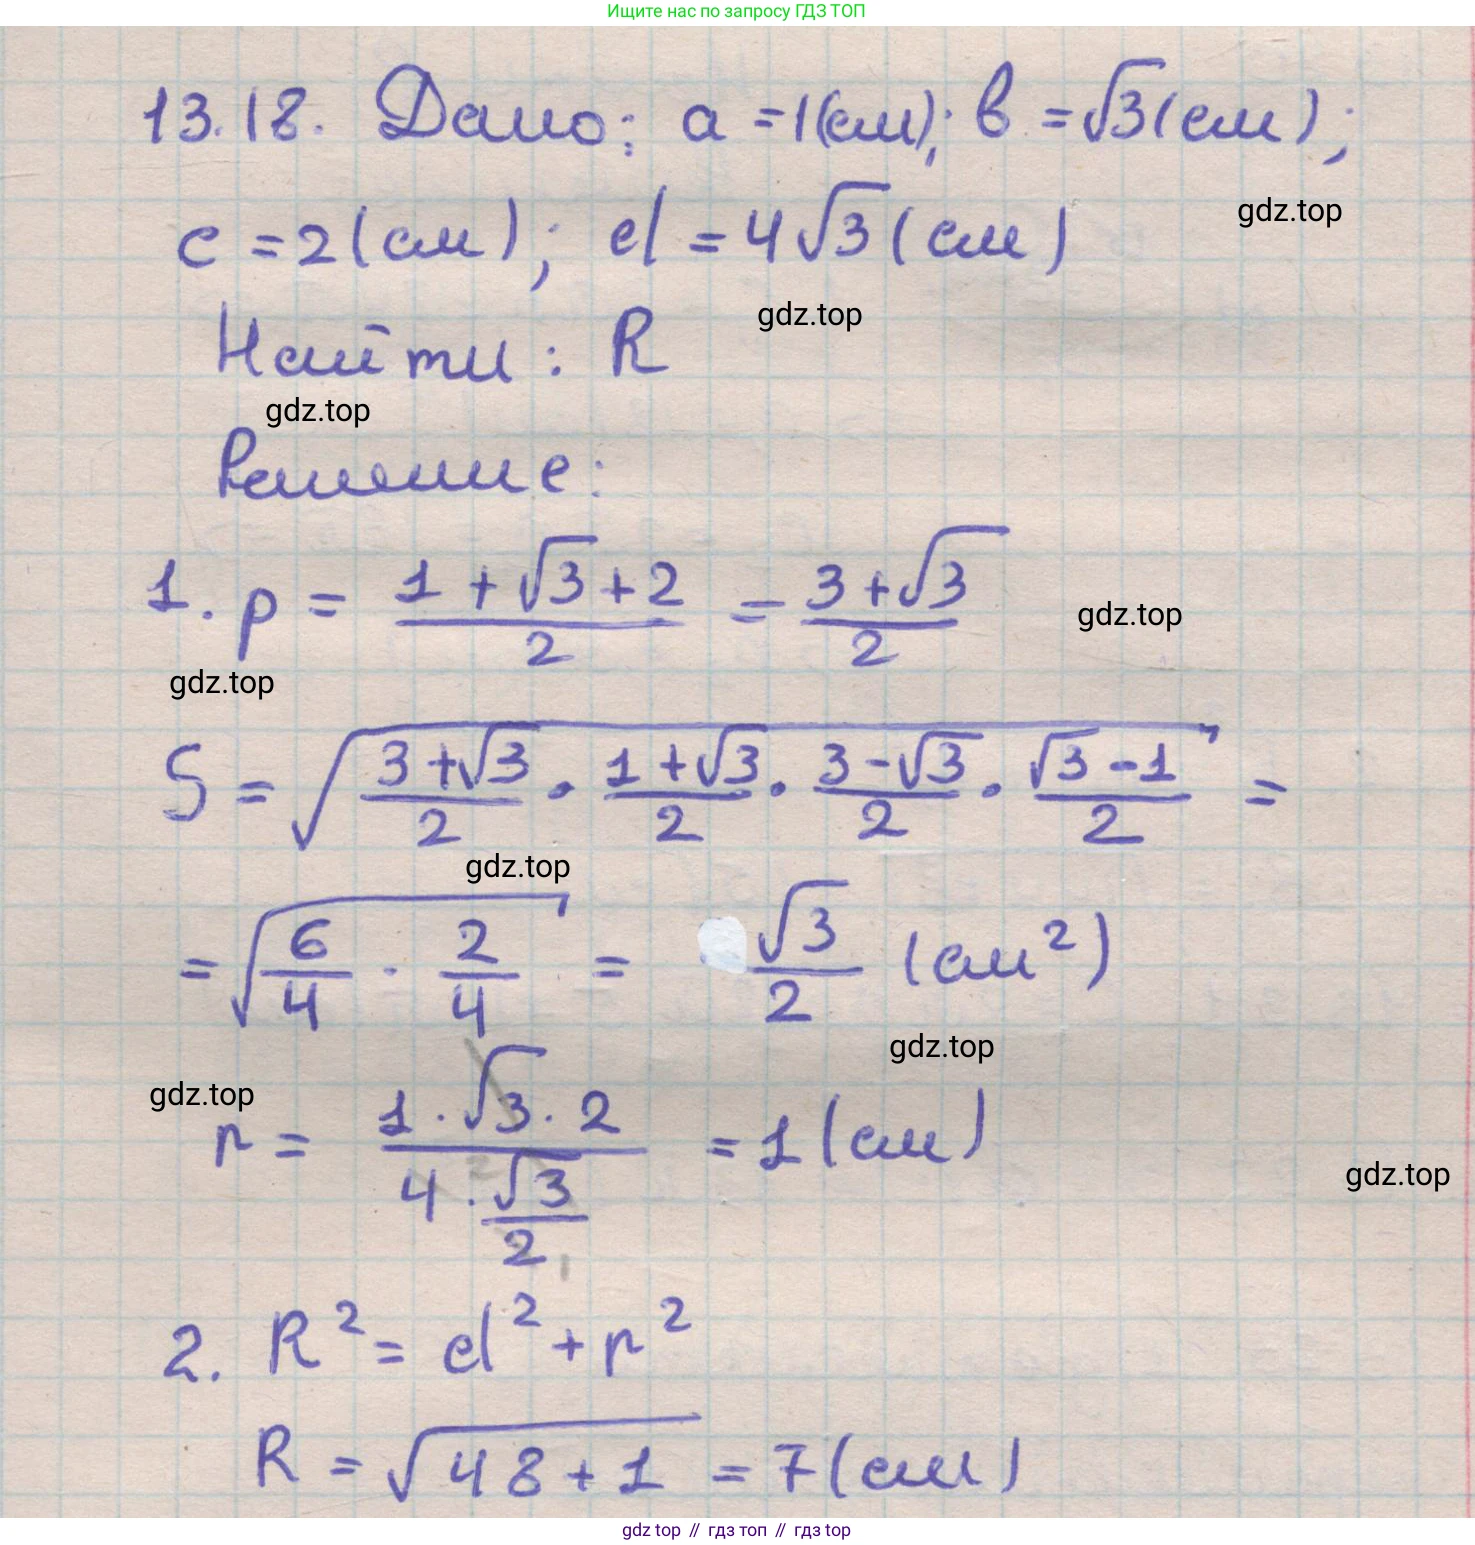 Ищите нас по запросу ГДЗ ТОП
13.18. Дано: a = 1(см); b = √3(см);
gdz.top
c = 2(см); d = 4√3(см)
gdz.top
Найти: R
gdz.top
Решение:
1. p = (1 + √3 + 2)/2 = (3 + √3)/2
gdz.top
gdz.top
S = √((3 + √3)/2 · (1 + √3)/2 · (3 - √3)/2 · (√3 - 1)/2) =
gdz.top
= √(6/4 · 2/4) = √3/2 (см²)
gdz.top
gdz.top
r = (1 · √3 · 2)/(4 · √3/2) = 1(см)
gdz.top
2. R² = d² + r²
R = √(48 + 1) = 7(см)
gdz top // гдз топ // гдз top